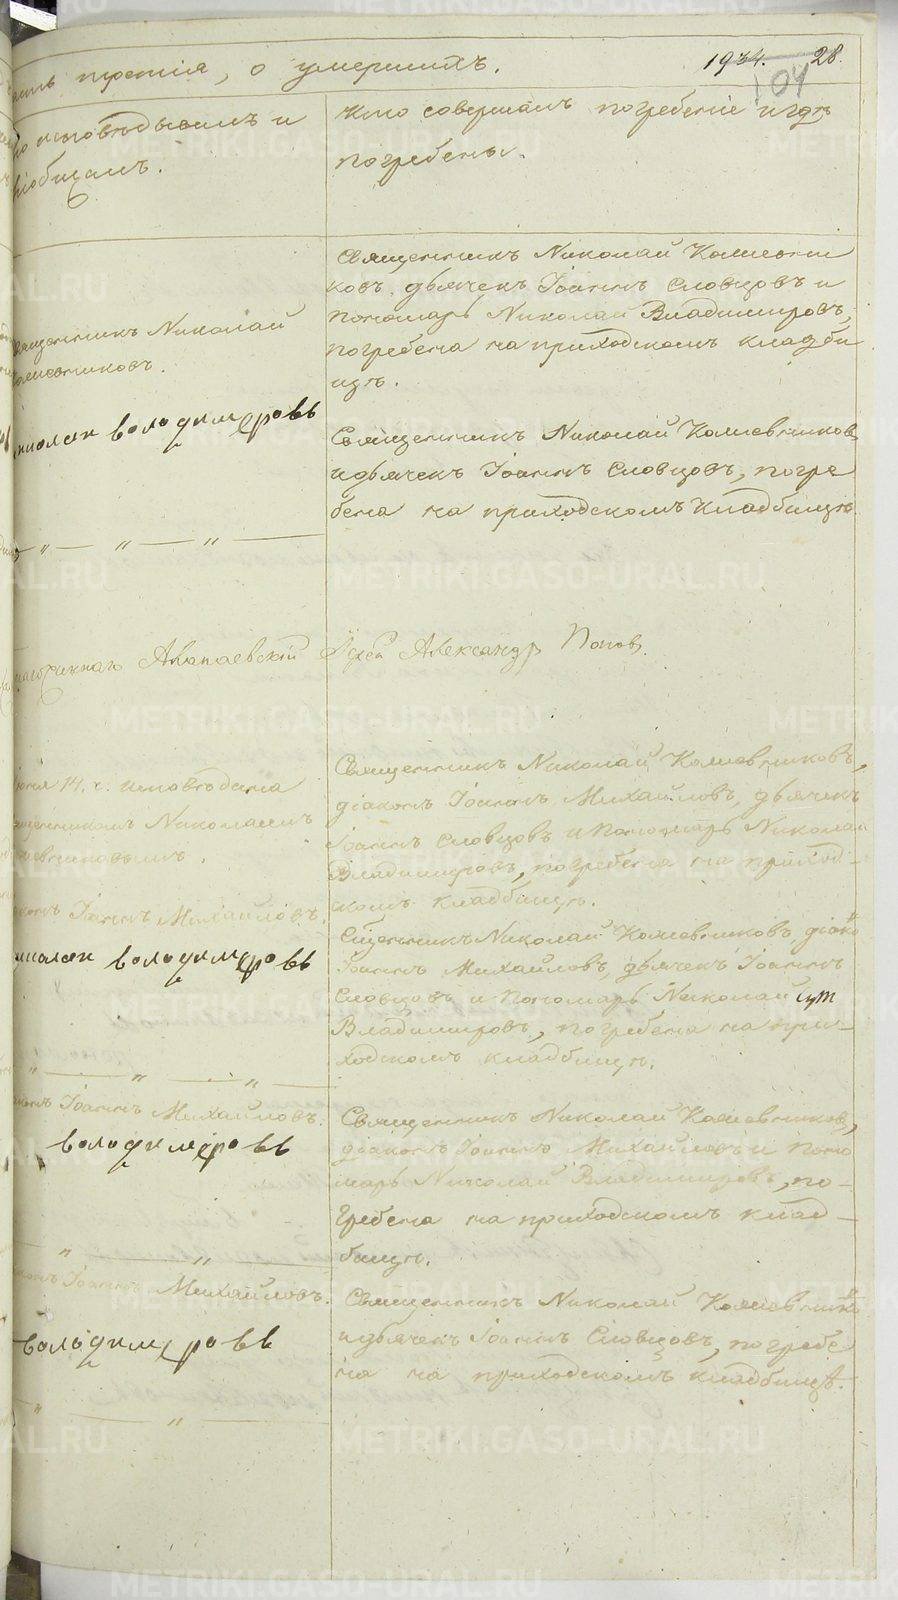 асть третія, о умершихъ. 1934. 28.
104
исповѣдывалъ и
пріобщалъ.
Кто совершалъ погребеніе и гдѣ
погребены.
Священникъ Николай
Колмевниковъ.
Николай Володимеровъ
Священникъ Николай Колмевни
ковъ, дьячекъ Іоаннъ Словцовъ и
пономарь Николай Владимировъ,
погребена на приходскомъ кладби
щѣ.
Священникъ Николай Колмевниковъ
и дьячекъ Іоаннъ Словцовъ, погре
бена на приходскомъ кладбищѣ.
— „ — „ — „ —
Алапаевскій Іерей Александръ Поповъ.
14. ч. исповѣдана
священникомъ Николаемъ
діаконъ Іоаннъ Михайловъ.
Николай Володимеровъ
Священникъ Николай Колмевниковъ,
діаконъ Іоаннъ Михайловъ, дьячекъ
Іоаннъ Словцовъ и пономарь Николай
Владимировъ, погребена на приход-
скомъ кладбищѣ.
Сщенникъ Николай Колмевниковъ, діако
Іоаннъ Михайловъ, дьячекъ Іоаннъ
Словцовъ и пономарь Николай
Владимировъ, погребена на при-
ходскомъ кладбищѣ.
„ — „ — „ —
діаконъ Іоаннъ Михайловъ.
Володимеровъ
Священникъ Николай Колмевниковъ,
діаконъ Іоаннъ Михайловъ и поно
марь Николай Владимировъ, по-
гребена на приходскомъ клад-
бищѣ.
„ — „ —
діаконъ Іоаннъ Михайловъ.
Володимеровъ
Священникъ Николай Колмевнико
и дьячекъ Іоаннъ Словцовъ, погребе
на на приходскомъ кладбищѣ.
„ — „ —
METRIKI.GASO-URAL.RU